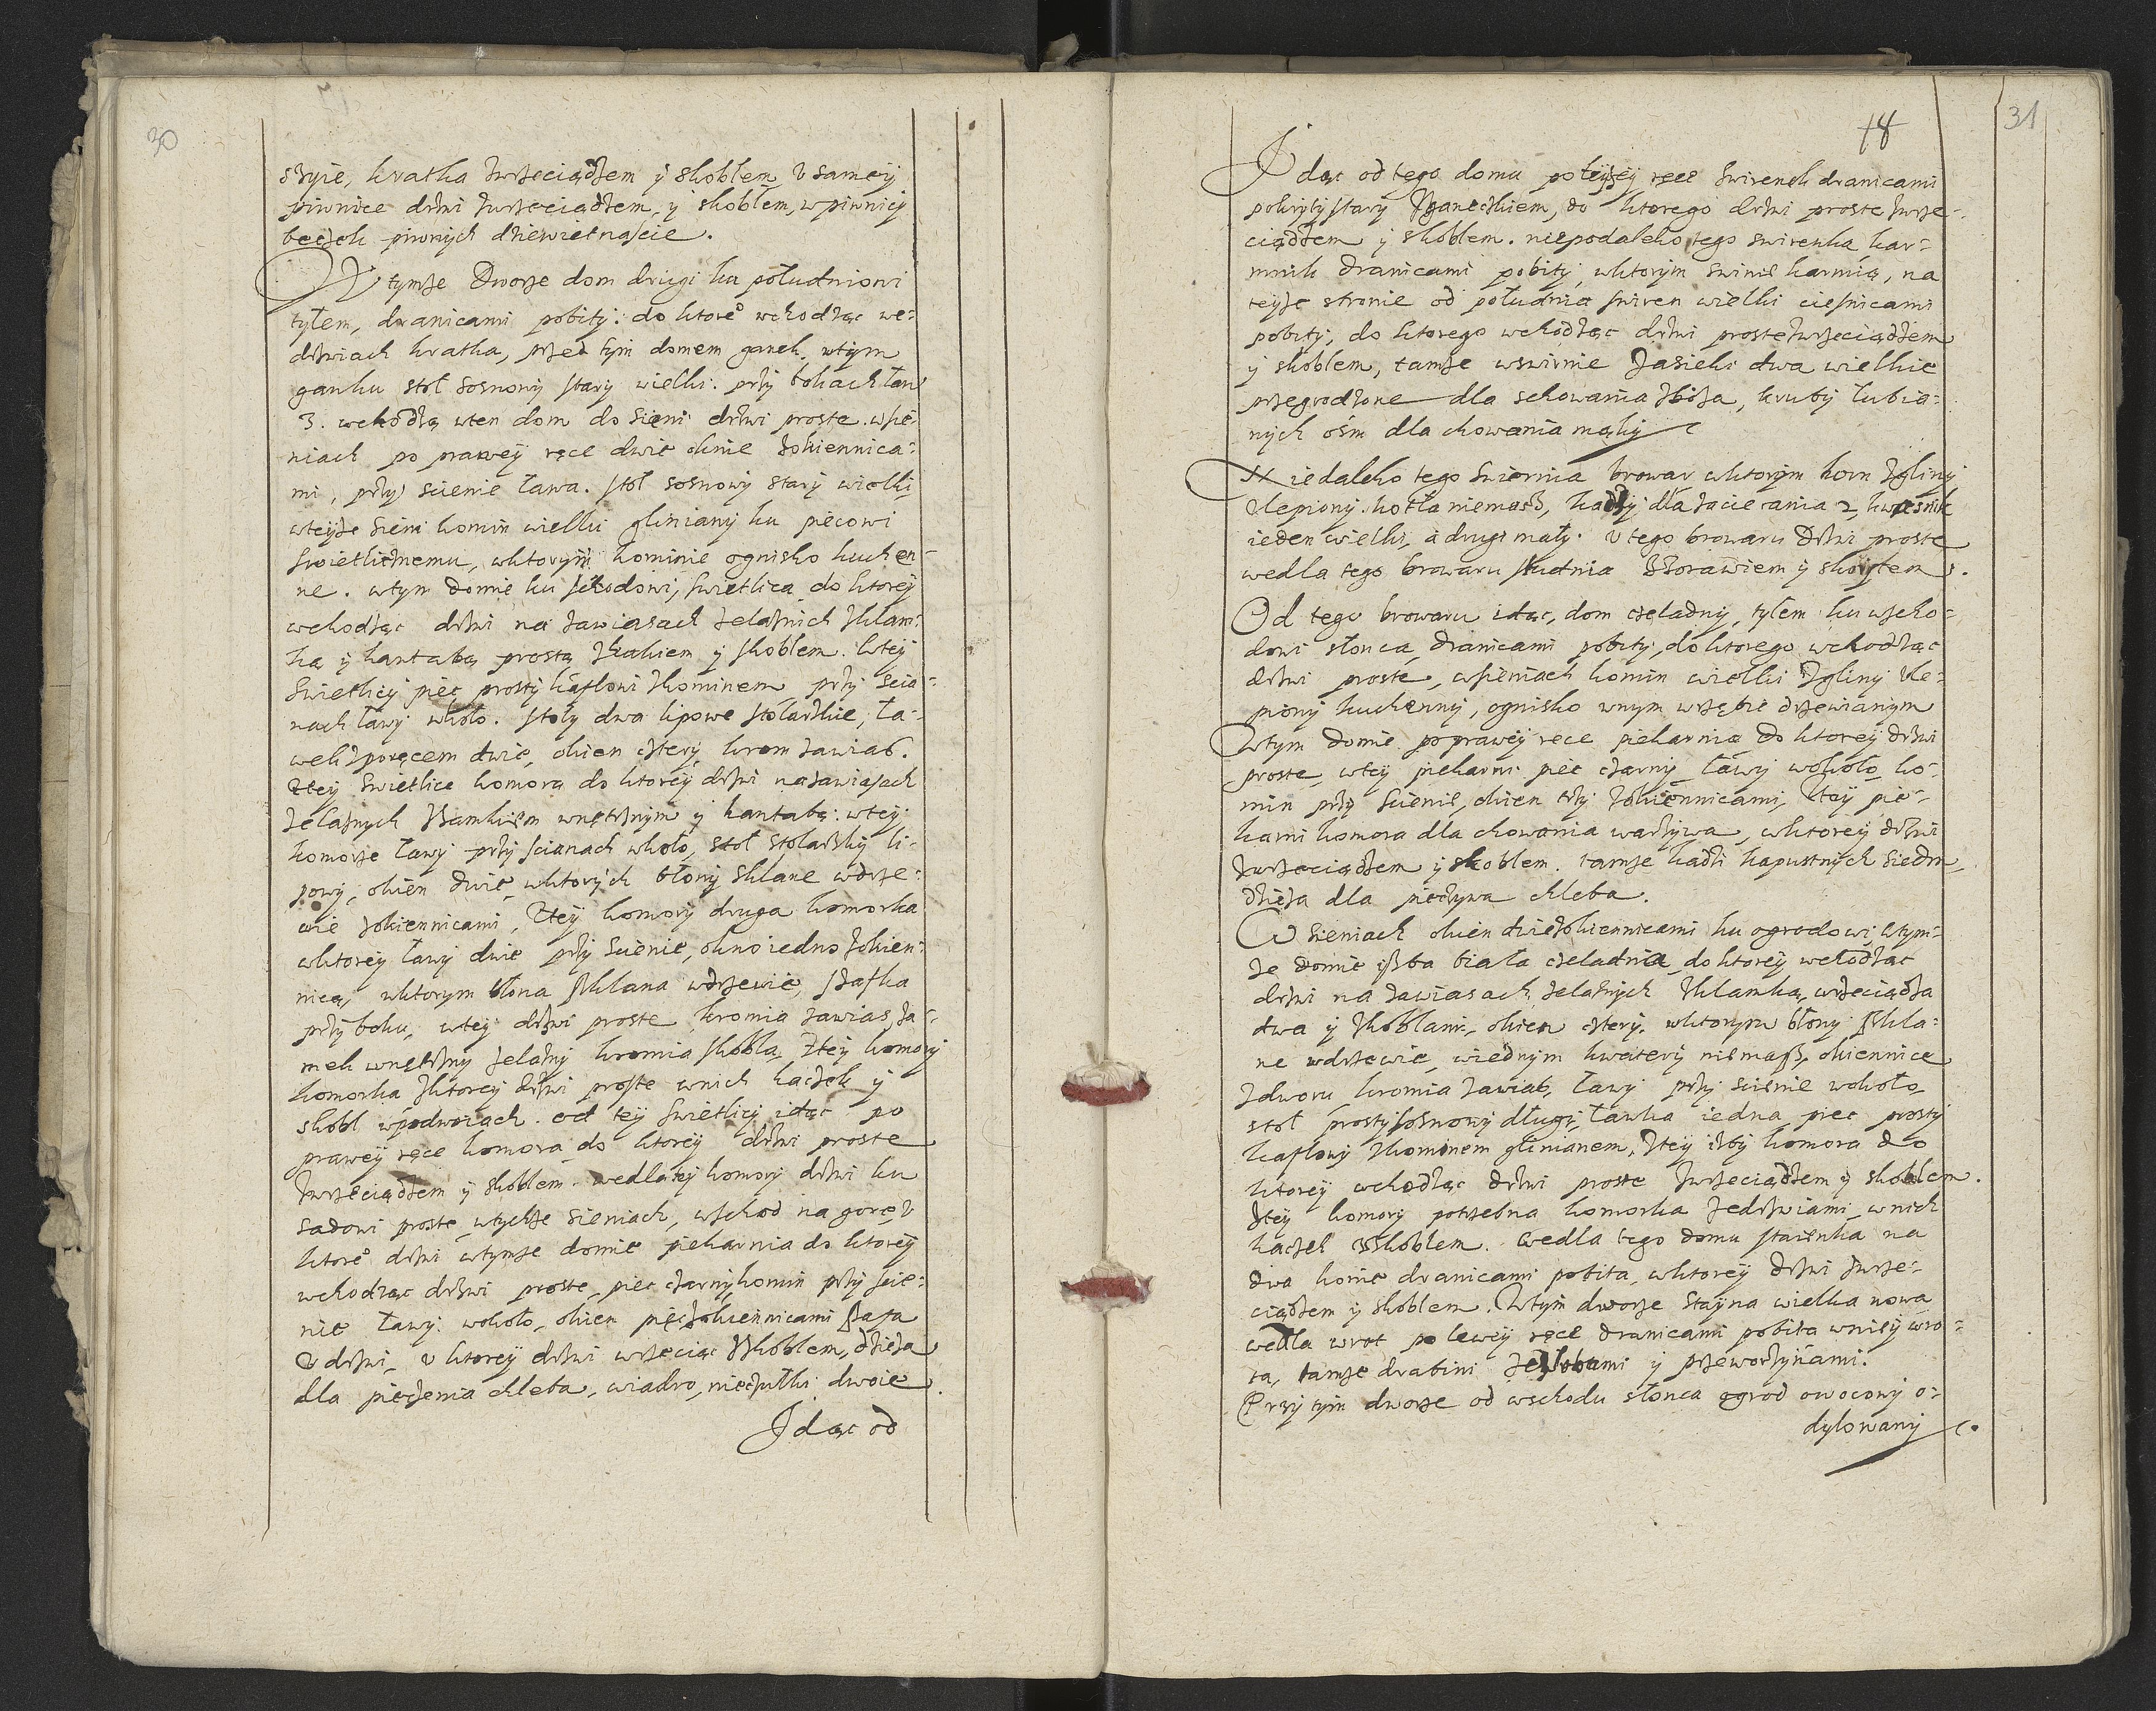 30
szyie, kratka zwrzeciądzem y skoblem, V samey
piwnice drzwi zwrzeciądzem, y skoblem, wpiwnicy
beczek piwnych dziewietnascie.
W tymze Dworze dom drugi ku południowi
tyłem, dranicami pobity: do ktoreo wchodząc we=
drzwiach kratka, przed tym domem ganek, wtym
ganku stoł sosnowy stary wielki. przy bokach ław
3. wchodzą wten dom do sieni drzwi proste. wsie=
niach po prawey ręce dwie oknie zokiennica=
mi, przy scienie ława. stoł sosnowy stary wielki
wteyze sieni komin wielki gliniany ku piecowi
swietlicznemu, wktorym kominie ognisko kuchen=
ne. wtym domie ku wschodowi, swietlica do ktorey
wchodząc drzwi na zawiasach zelaznich zklam=
ką y kantabą prostą zhakiem y skoblem. Wtey
Swietlicy piec prosty kaflowi zkominem przy scia=
nach ławy wkoło. stoły dwa lipowe stolarskie, ła=
wek zporęcem dwie, okien cztery, krom zawias.
Ztey swietlice komora do ktorey drzwi nazawiasach
zelaznych zzamkiem wnętrznym y kantabą. wtey
komorze ławy przy scianach wkoło, stoł stolarsky li=
powy, okien dwie, wktorych błony sklane wdrze=
wie zokiennicami, Ztey komory druga komorka
wktorey ławy dwie przy scienie, okno iedno zokien=
nicą, wktorym błona szklana wdrzewie, szafka
przy boku, wtey drzwi proste kromia zawias, za=
mek wnętrzny zelazny kromia skobla, Ztey komory
komorka zktorey drzwi proste wnich haczek y
skobl wpodwoiach. od tey swietlicy idąc po
prawey ręce komora do ktorey drzwi proste
zwrzeciądzem y skoblem. wedla tey komory drzwi ku
sadowi proste, wtychze sieniach, wschod na gorę, V
ktoreo drzwi wtymze domie piekarnia do ktorey
wchodząc drzwi proste, piec czarny komin przy scie=
nie ławy wokoło, okien pięć zokiennicami szafa
V drzwi, v ktorey drzwi wrzeciąc zskoblem, dzieza
dla pieczenia chleba, wiadro, nieczułki dwoie.
Idąc od
31
18
Idąc od tego domu po teyzey ręce swirenek dranicami
pokryty stary zganeczkiem, do ktorego drzwi proste zwrze=
ciądzem y skoblem. niepodaleko tego swirenka kar=
mnik dranicami pobity, wktorym swinie karmią, na
teyze stronie od południa swiren wielki ciesnicami
pobity, do ktorego wchodząc drzwi proste zwrzeciądzem
y skoblem, tamze wswirnie zasieki dwa wielkie
przegrodzone dla schowania zboza, kruby łubia=
nych ośm dla chowania mąky
Niedaleko tego Swiernia browar wktorym horn zgliny
vlepiony. kotła niemasz, kadzy dla zacierania 2, kwasnik
ieden wielki, a drugi mały. V tego browaru drzwi proste
wedla tego browaru studnia zzorawiem y skorytem.
Od tego browaru idąc, dom czeladny, tyłem ku wscho=
dowi słonca, dranicami pobity, do ktorego wchodząc
drzwi proste, wsieniach komin wielki zgliny vle=
piony kuchenny, ognisko wnym wrzębie drzewianym
Wtym domie po prawey ręce piekarnia do ktorey drzwi
proste, wtey piekarni piec czarny ławy wokoło, ko=
min przy scienie, okien trzy zokiennicami, Ztey pie=
karni komora dla chowania warzywa, wktorey drzwi
zwrzeciądzem y skoblem. tamze kadzi kapustnych siedm
dzieza dla pieczywa chleba.
W sieniach okien dwie zokiennicami ku ogrodowi, Wtym=
ze domie iszba biała czeladnia, do ktorey wchodząc
drzwi na zawiasach zelaznych zklamką, wrzeciądza
dwa y zkoblami, okien cztery, wktorym błony szkla=
ne wdrzewie, wiednym kwatery niemasz, okiennice
zdworu kromia zawias, ławy przy scienie wokoło
stoł prosty sosnowy długi, ławka iedna piec prosty
kaflowy zkominem glinianem, Ztey izby komora do
ktorey wchodząc drzwi proste zwrzeciądzem y skoblem.
Ztey komory potrzebna komorka zedrzwiami, wnich
haczek zskoblem. Wedla tego domu staienka na
dwa konie dranicami pobita, wktorey drzwi zwrze=
ciądzem y skoblem. Wtym dworze stayna wielka nowa
wedla wrot po lewey ręce dranicami pobita wniey wro=
ta, tamze drabini zezłobami y przeworzynami.
Przy tym dworze od wschodu słonca ogrod owocowy o=
dylowany